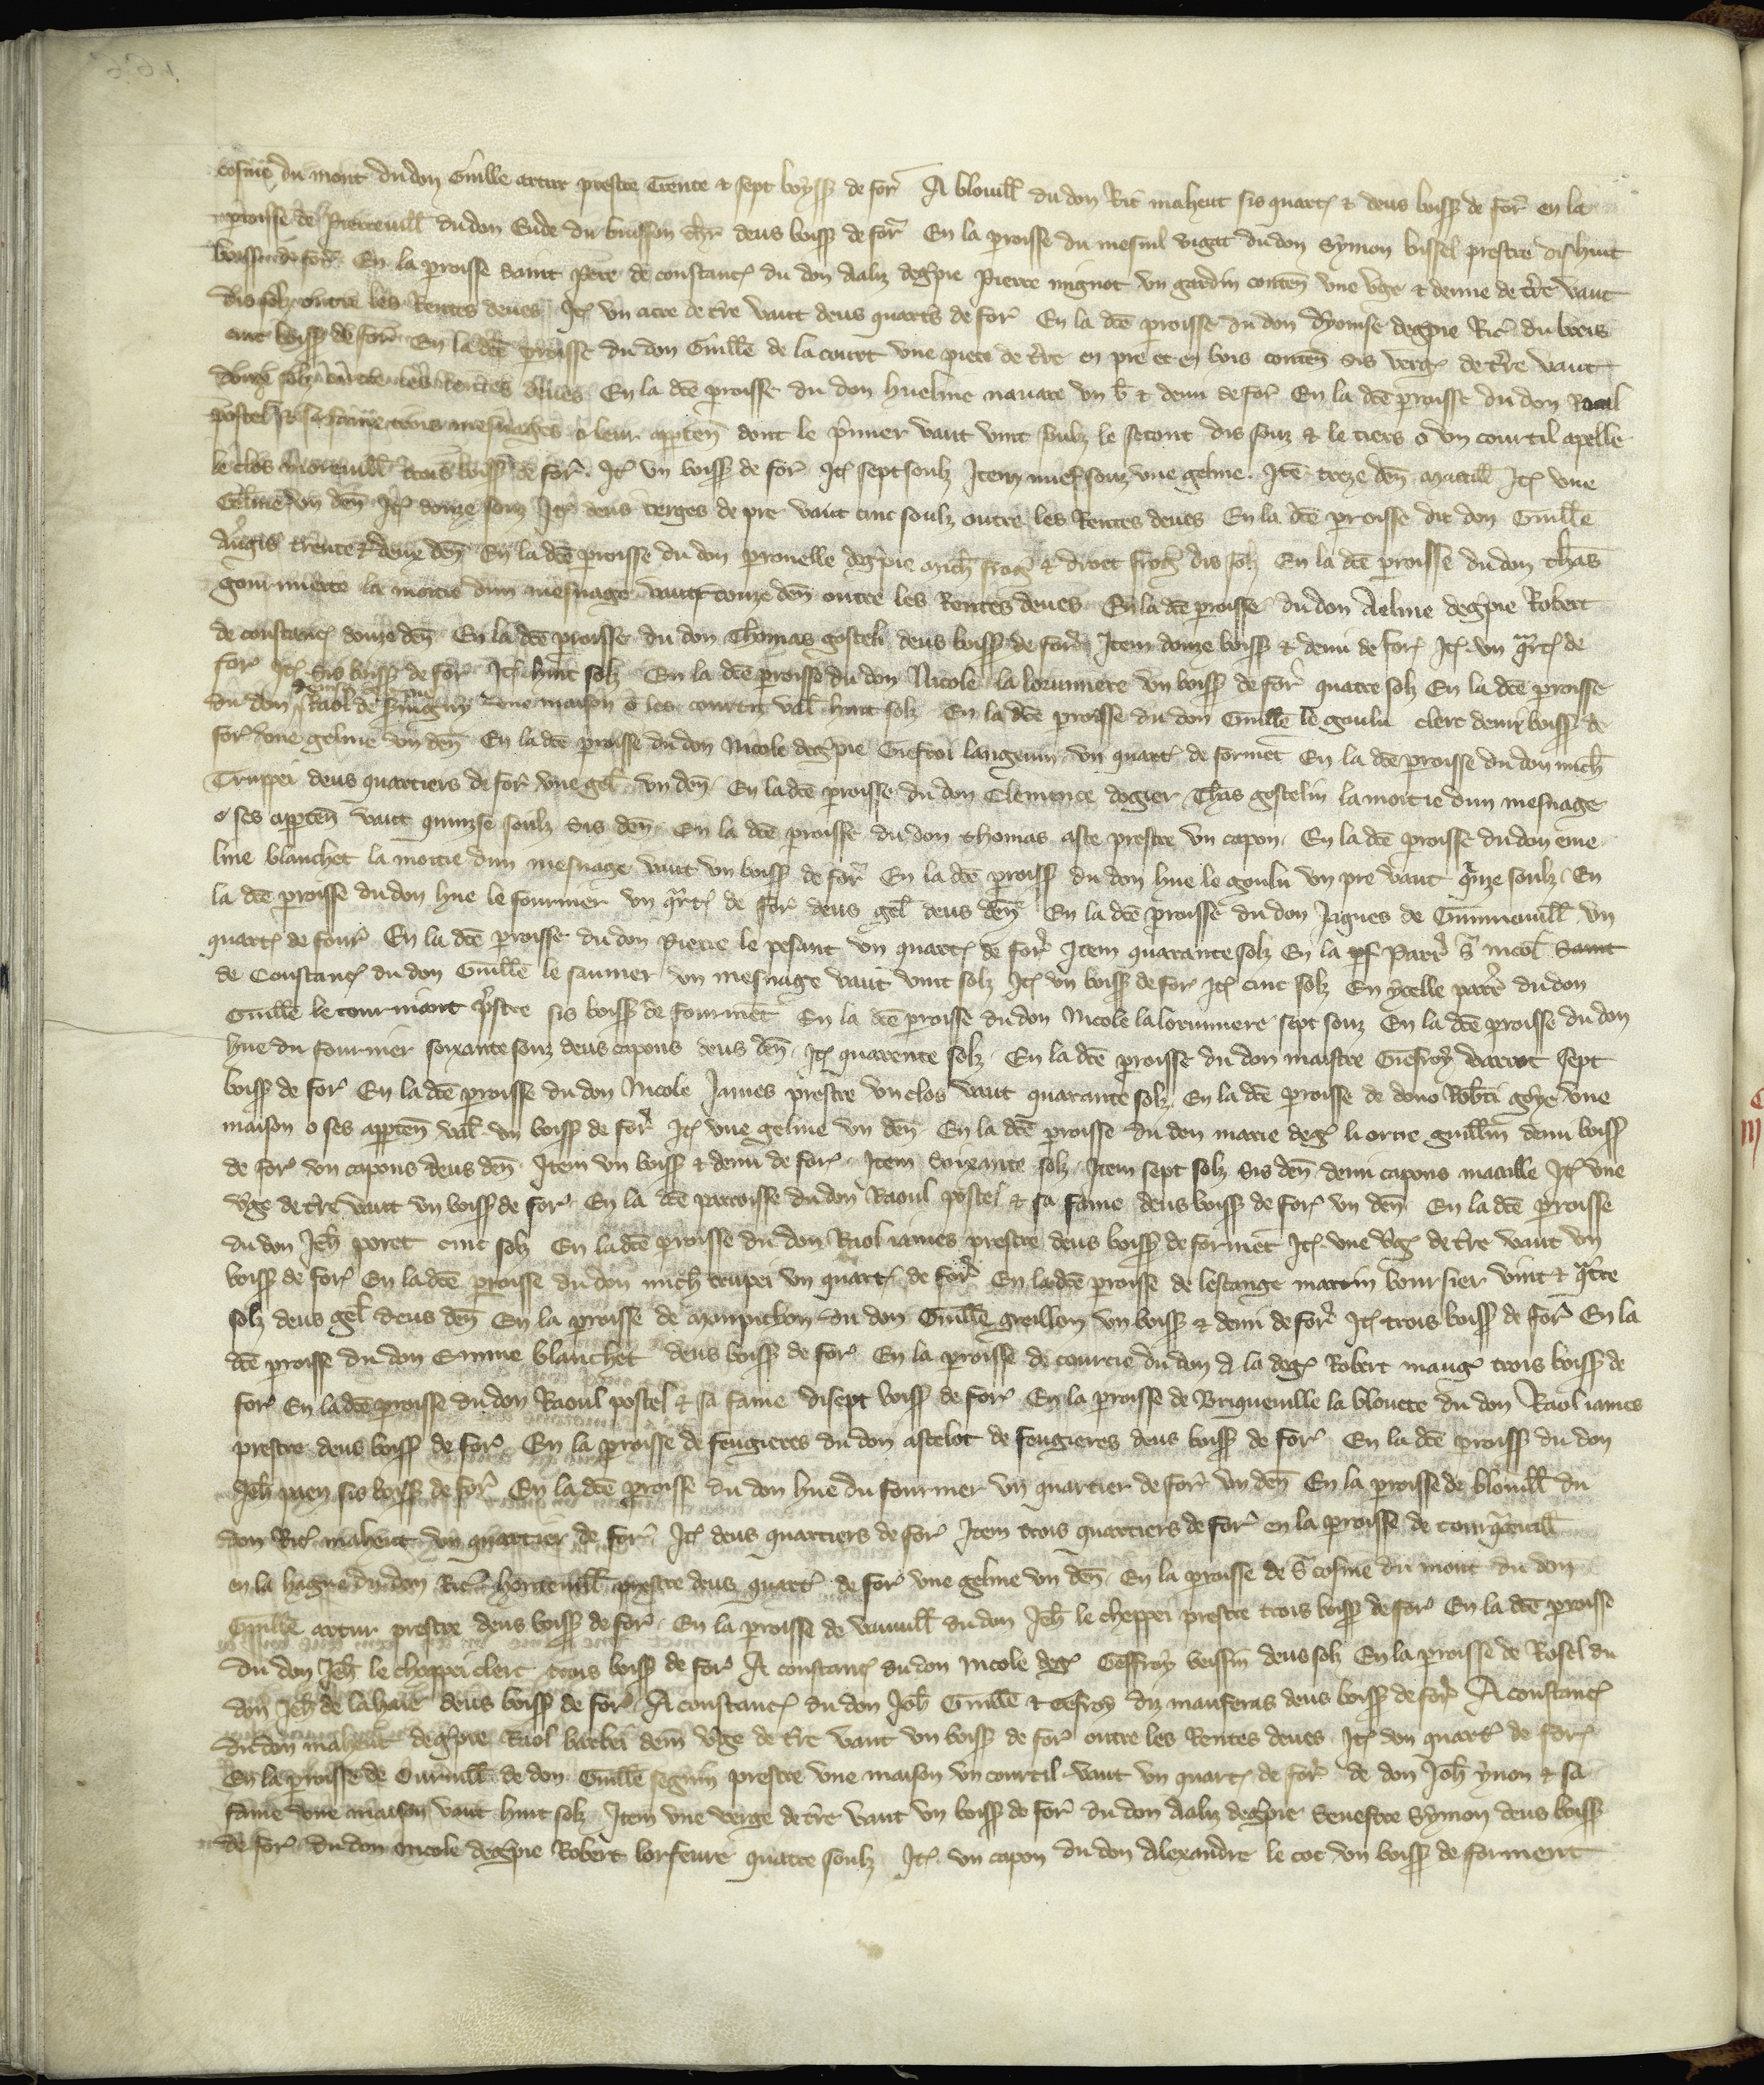 cosme du mont du don Guille artur prestre Trente & sept boyss de for A blouill du don Ric maheut sis quart & deus boiss de for en la
proisse de Pierreuill du don Eude du buisson cher deus boiss de for En la proisse du mesnil vigat du don Symon bissel prestre dishuit
boiss de for En la proisse saint Pere de constanc du don Aaliz deg̃pie Pierre mignot vn gardin conteñ vne v̾ge & demie de t̾re vaut
dis solz outre les Rentes deues It vn acre de t̾re vaut deus quarts de for En la dc̃e proisse du don dyonise deg̃pie Ric du
cinc boiss de for En la dc̃e proisse du don Guille de la court vne piece de t̾re en pre et en bois conteñ sis verg de t̾re vaut
douze solz outre les Rentes deues En la dc̃e proisse du don hueline nauare vn b̃ & demi de for En la dc̃e proisse du don Raoul
postel & sa fame trois mesnages o leur apparteñ dont le pmier vaut vint soulz le secont dis souz & le tiers o vn courtil apelle
le clos Moreuill trois boiss de for. It vn boiss de for It sept soulz Item nuef souz vne geline. Ite treze deñ maaill It vne
Geline vn deñ It douze souz It deus verges de pre vaut cinc soulz outre les Rentes deues En la dc̃e proisse du don Guille
Augis trente & deux deñ En la dc̃e proisse du don pronelle deg̃pie Mich frog & droet frog dis solz En la dc̃e proisse du don thas
la moitie dun mesnage vaut douze deñ outre les Rentes deues En la dc̃e proisse du don Aeline deg̃pie Robert
de constanc douze deñ En la dc̃e proisse du don Thomas gostelī deus boiss de for Item douze boiss & demi de for It vn qart de
for It sis boiss de for It huit solz En la dc̃e proisse du don Nicole la lorimiere vn boiss de for quatre solz En la dc̃e proisse
du don Raol de vne maison o les courtiz val huit solz En la dc̃e proisse du don Guille le goulu clerc demi boiss de
for vne geline vn deñ En la dc̃e proisse du don Nicole deg̃pie Giefroi langeuin vn quart de formet En la dc̃e proisse du don mich
Truppei deus quartiers de for vne gel vn deñ En la dc̃e proisse du don Clemence dogier Thas gostelin la moitie dun mesnage
o ses apparteñ vaut quinzse soulz sis deñ En la dc̃e proisse du don thomas aste prestre vn capon En la dc̃e proisse du don eme
line blanchet la moitie dun mesnage vaut vn boiss de for En la dc̃e proiss du don hue le goulu vn pre vaut qinze soulz En
la dc̃e proisse du don hue le fournier vn qart de for deus gel deus deñ En la dc̃e proisse du don Jaques de Gunneuill vn
quart de four En la dc̃e proisse du don Pierre le pesant vn quart de for Item quarante solz En la parr S nicol saint
de Constanc du don Guille le saunier vn mesnage vaut vint solz It vn boiss de for It cinc solz En ycelle parr du don
Guille le tourmont pstre sis boiss de fourmet En la dc̃e proisse du don Nicole la lorimiere sept souz En la dc̃e proisse du don
hue du fournier soixante souz deus capons deus deñ It quarente solz En la dc̃e proisse du don maistre Giefroy warrot sept
boiss de for En la dc̃e proisse du don Nicole James prestre vn clos vaut quarante solz En la dc̃e proisse de dono Robti goye vne
maison o ses apparteñ val vn boiss de for It vne geline vn deñ En la dc̃e proisse du don marie deg li ortie guillm demi boiss
de for vn capons deus deñ Item vn boiss & demi de for Item soixante solz Item sept solz sis deñ demi capons maaille It vne
v̾ge de t̾re vaut vn boiss de for En la dc̃e parroisse du don Raoul postel & sa fame deus boiss de for vn deñ En la dc̃e proisse
du don Jeh poret cinc solz En la dc̃e proisse du don Raol iames prestre deus boiss de formet It vne v̾g de t̾re vaut vn
boiss de for En la dc̃e proisse du don mich trupei vn quart de for En la dc̃e proisse de lescange martin boursier vint & qatre
solz deus gel deus deñ En la proisse de monpinchon du don Guille greillon vn boiss & demi de for It trois boiss de for En la
dc̃e proisse du don Emme blanchet deus boiss de for En la proisse de courcie du don A la deg Robert maug trois boiss de
for En la dc̃e proisse du don Raoul postel & sa fame disept boiss de for En la proisse de Briqueuille la blouete du don Raol iames
prestre deus boiss de for En la proisse de feugieres du don astelot de feugieres deus boiss de for En la dc̃e proiss du don
Jeh paen sis boiss de for En la dc̃e proisse du don hue du fournier vn quartier de for vn deñ En la proisse de blouill du
don Ric maheut vn quartier de for It deus quartiers de for Item trois quartiers de for en la proisse de tourqteuill
en la hague du don Ric honteuill prestre deus quart de for vne geline vn deñ En la proisse de S cosme du mont du don
Guille artur prestre deus boiss de for En la proisse de vauuill du don Jeh le cheppei prestre trois boiss de for En la dc̃e proisse
du don Jeh le cheppei clerc trois boiss de for A constanc du don Nicole deg Geffroy veissin deus solz En la proisse de Rosel du
don Jeh de la haie deus boiss de for A constanc du don Joh Guille & Gefroy diz mauferas deus boiss de for A constanc
du don maheut deg̃pie Raol barbei dem v̾ge de t̾re vaut vn boiss de for outre les Rentes deues It vn quart de for
En la proisse de Ouruill de don Guille seguin prestre vne maison vn courtil vaut vn quart de for de don Joh ynon & sa
fame vne maison vaut huit solz Item vne verge de t̾re vaut vn boiss de for du don Aaliz deg̃pie Seuestre Symon deus boiss
de for du don Nicole deg̃pie Robert lorfeure quatre soulz It vn capon du don Alexandre le coc vn boiss de forment